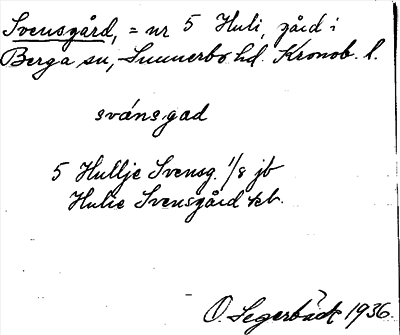 Svensgård, = nr 5 Huli, gård i
Berga sn, Sunnerbo hd. Kronob. l.
svánsgad
5 Hullje Svensg. 1/8 jb
Hulie Svensgård kb.
O. Segerbäck 1936.